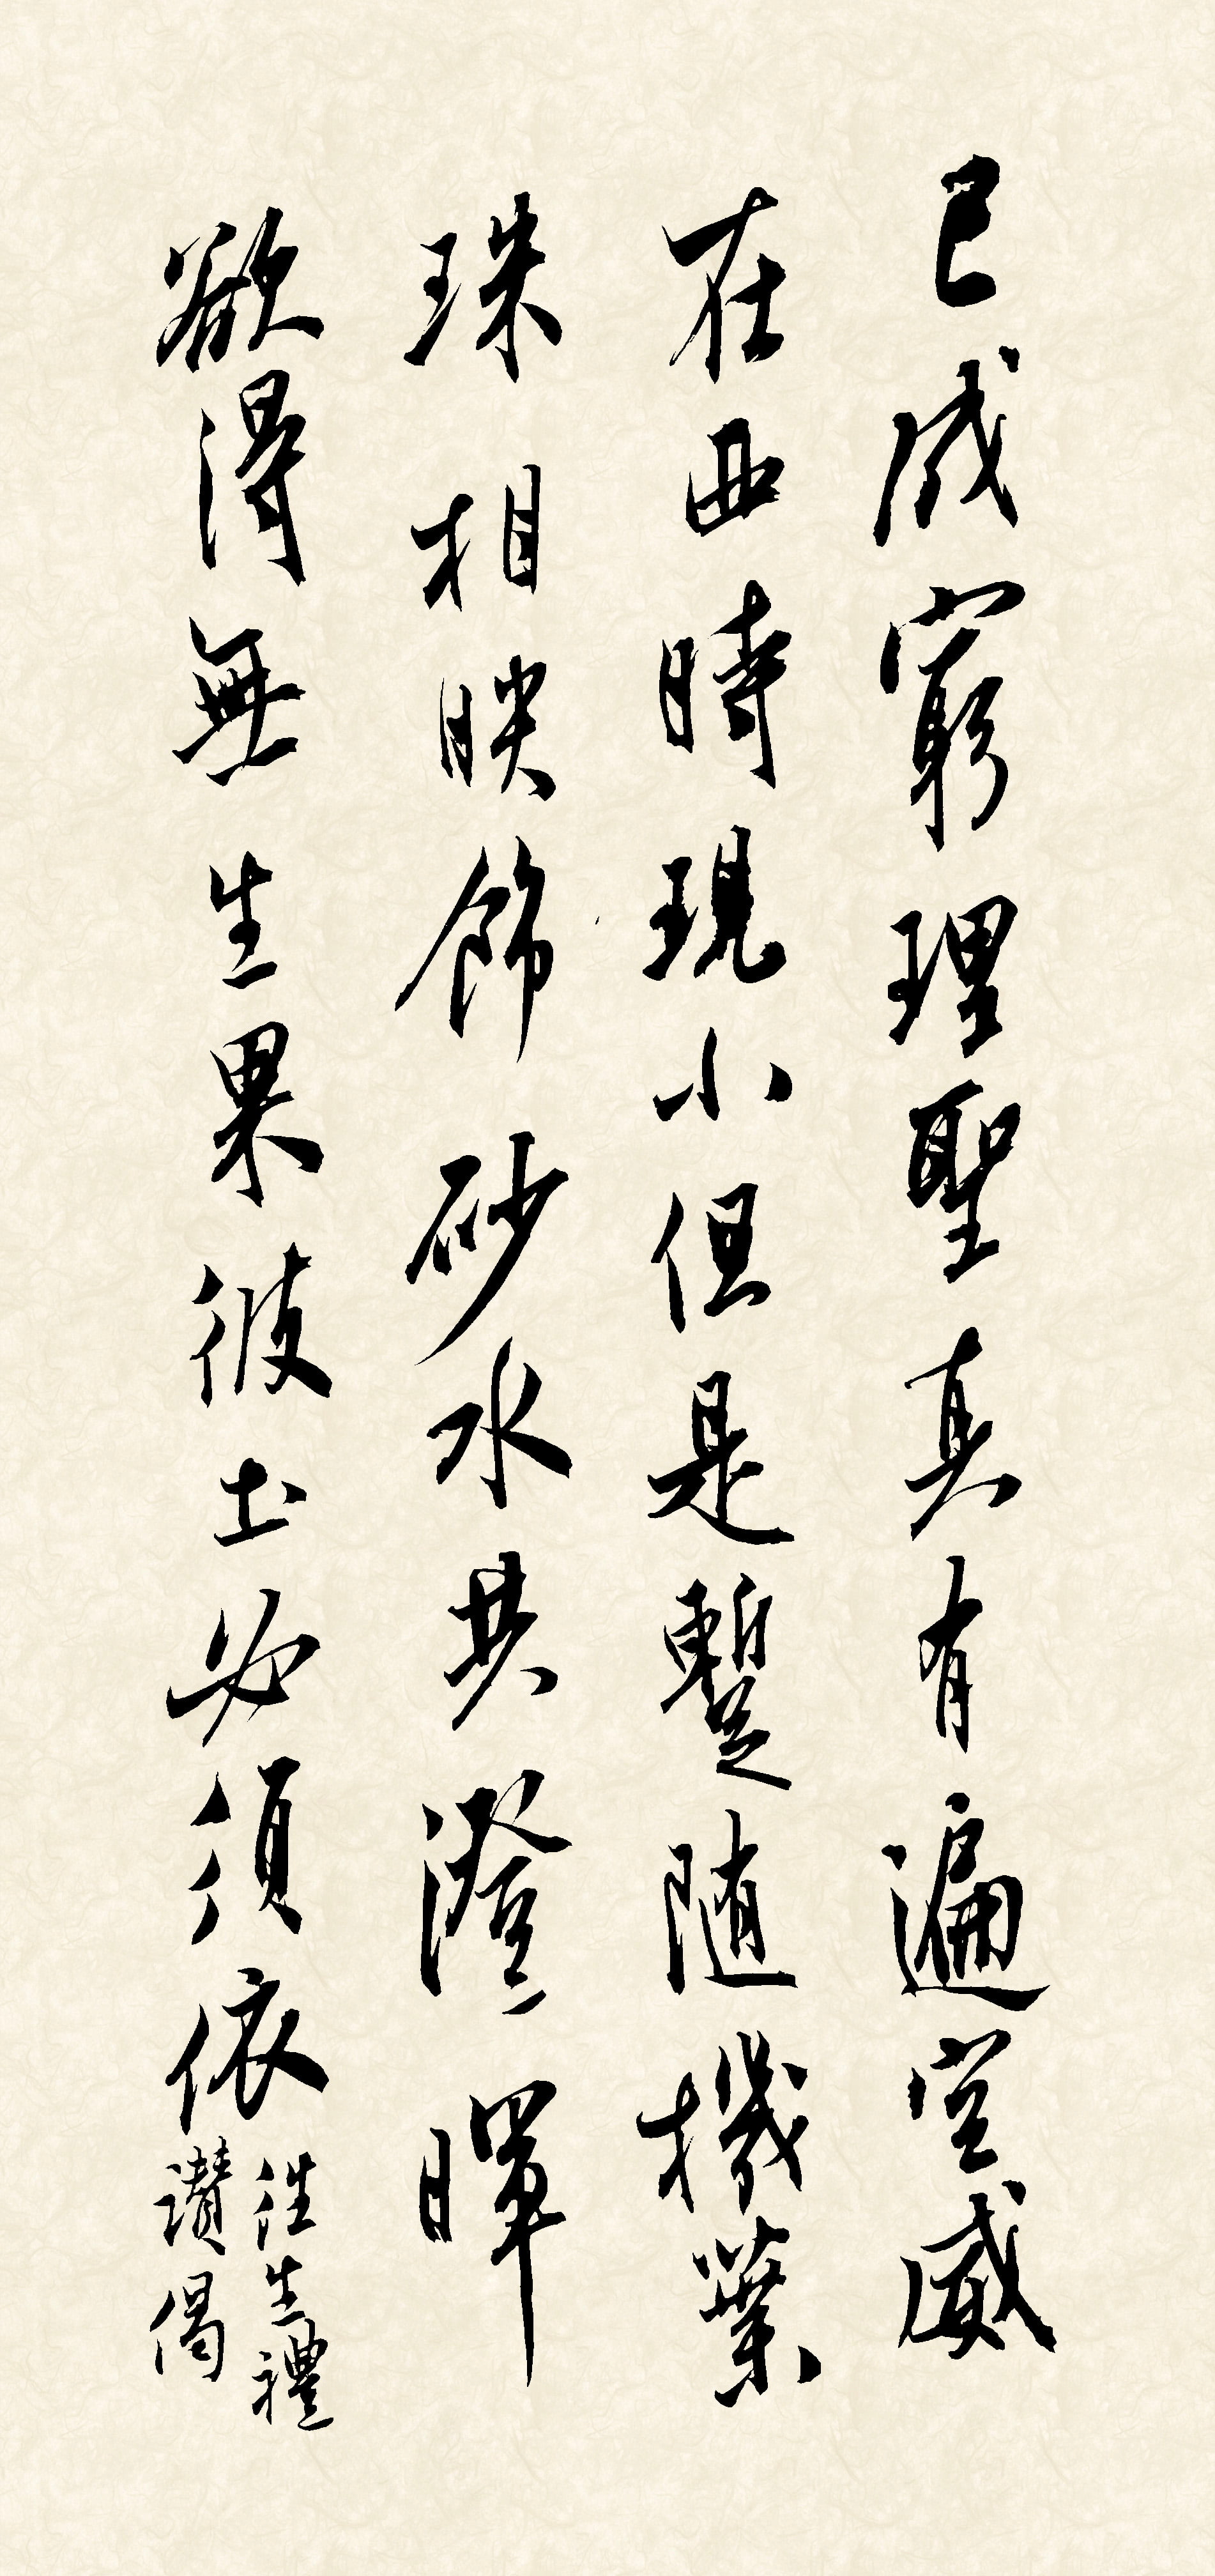 已成窮理聖真有遍空威
在西時現小但是暫随機葉
珠相映飾砂水共澄暉
欲得無生果彼土必須依
往生禮
讚偈